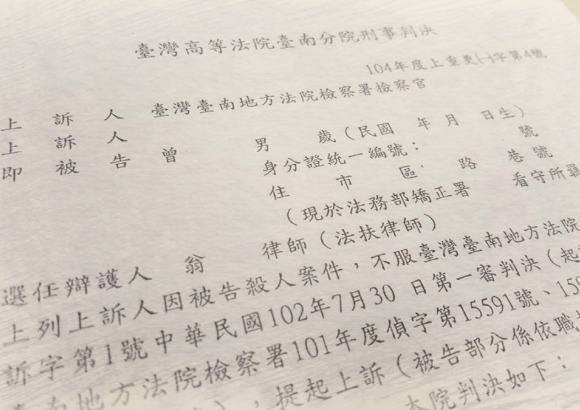 臺灣高等法院臺南分院刑事判決
104年度上重更(一)字第4號
上訴人 臺灣臺南地方法院檢察署檢察官
上訴人
即被告曾 男 歲(民國 年 月 日生)
身分證統一編號: 號
住 市 區 路 巷 號
(現於法務部矯正署 看守所羈
選任辯護人 翁 律師(法扶律師)
上列上訴人因被告殺人案件,不服臺灣臺南地方法院
訴字第1號中華民國102年7月30 日第一審判決(起
臺南地方法院檢察署101年度偵字第15591號、15
),提起上訴(被告部分係依職
本院判決如下: